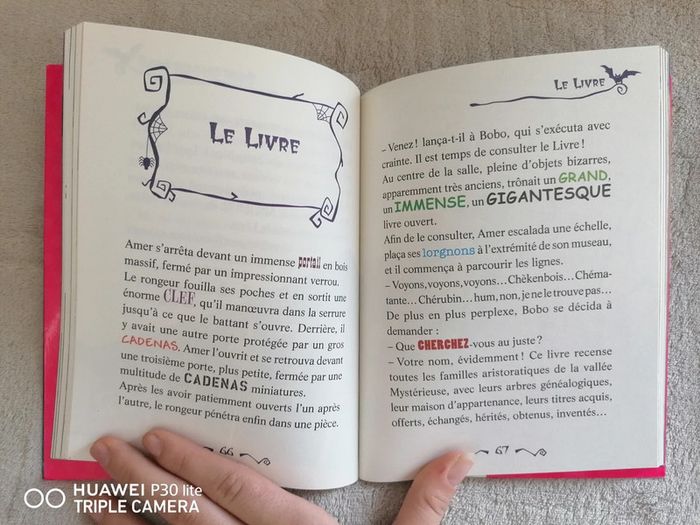 Le Livre
Amer s'arrêta devant un immense portail en bois
massif, fermé par un impressionnant verrou.
Le rongeur fouilla ses poches et en sortit une
énorme CLEF, qu'il manœuvra dans la serrure
jusqu'à ce que le battant s'ouvre. Derrière, il
y avait une autre porte protégée par un gros
CADENAS. Amer l'ouvrit et se retrouva devant
une troisième porte, plus petite, fermée par une
multitude de CADENAS miniatures.
Après les avoir patiemment ouverts l'un après
l'autre, le rongeur pénétra enfin dans une pièce.
66
Le Livre
– Venez ! lança-t-il à Bobo, qui s'exécuta avec
crainte. Il est temps de consulter le Livre !
Au centre de la salle, pleine d'objets bizarres,
apparemment très anciens, trônait un GRAND,
un IMMENSE, un GIGANTESQUE
livre ouvert.
Afin de le consulter, Amer escalada une échelle,
plaça ses lorgnons à l'extrémité de son museau,
et il commença à parcourir les lignes.
– Voyons, voyons, voyons… Chèkenbois… Chéma-
tante… Chérubin… hum, non, je ne le trouve pas…
De plus en plus perplexe, Bobo se décida à
demander :
– Que CHERCHEZ-vous au juste ?
– Votre nom, évidemment ! Ce livre recense
toutes les familles aristoratiques de la vallée
Mystérieuse, avec leurs arbres généalogiques,
leur maison d'appartenance, leurs titres acquis,
offerts, échangés, hérités, obtenus, inventés…
67
HUAWEI P30 lite
TRIPLE CAMERA